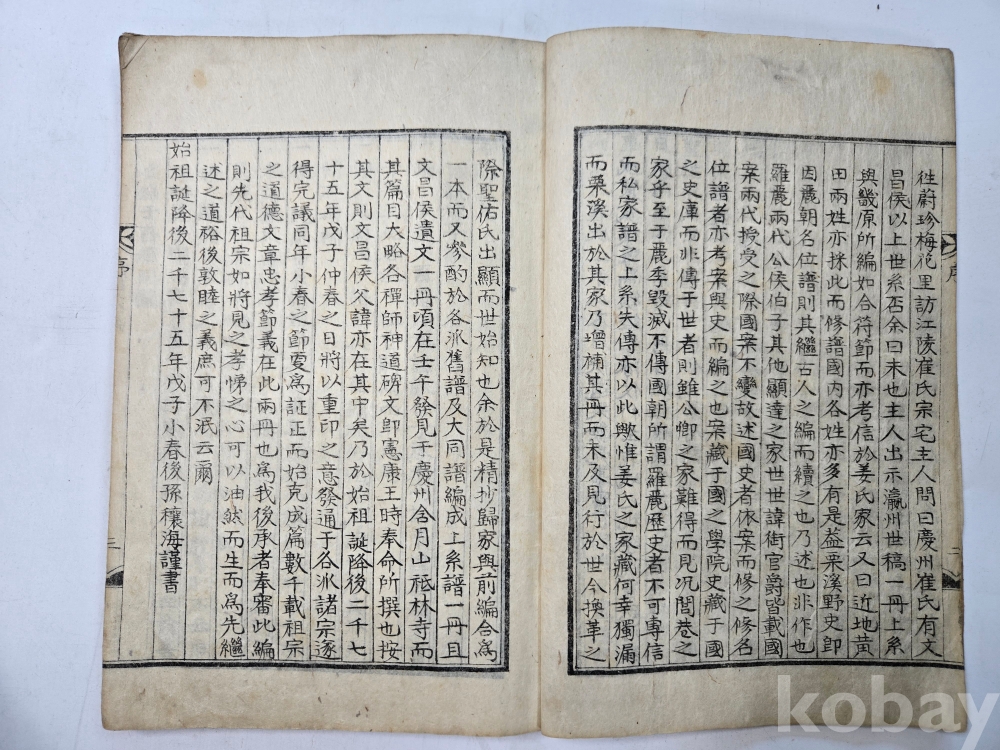 徃蔚珍梅花里訪江陵崔氏宗宅主人問曰慶州崔氏有文
昌侯以上世系否余曰未也主人出示瀛州世稿一冊上系
與幾原所編如合符節而亦考信於姜氏家云又曰近地黃
田兩姓亦採此而修譜國內各姓亦多有是益栗溪野史即
因麗朝名位譜則其繼古人之編而續之也乃述也非作也
羅麗兩代公侯伯子其他顯達之家世世諱街官爵皆載國
案兩代授受之際國案不變故述國史者依案而修之修名
位譜者亦考案與史而編之也案藏于國之學院史藏于國
之史庫而非傳于世者則雖公卿之家難得而見況閭巷之
家乎至于麗季毀滅不傳國朝所謂羅麗歷史者不可傳信
而私家譜之上系失傳亦以此歟惟姜氏之家藏何幸獨漏
而栗溪出於其家乃增補其冊而未及見行於世今換革之
際聖佑氏出顯而世始知也余於是精抄歸家與前編合爲
一本而又參酌於各派舊譜及大同譜編成上系譜一冊且
文昌侯遺文一冊頃在壬午發見于慶州含月山祗林寺而
其篇目大略各禪師神道碑文卽憲康王時奉命所撰也按
其文則文昌侯父諱亦在其中矣乃於始祖誕降後二千七
十五年戊子仲春之日將以重印之意發通于各派諸宗遂
得完議同年小春之節更爲証正而始克成篇數千載祖宗
之道德文章忠孝節義在此兩冊也爲我後承者奉審此編
則先代祖宗如將見之孝悌之心可以油然而生而爲先繼
述之道裕後敦睦之義庶可不泯云爾
始祖誕降後二千七十五年戊子小春後孫穰海謹書
序
二
序
三
kobay